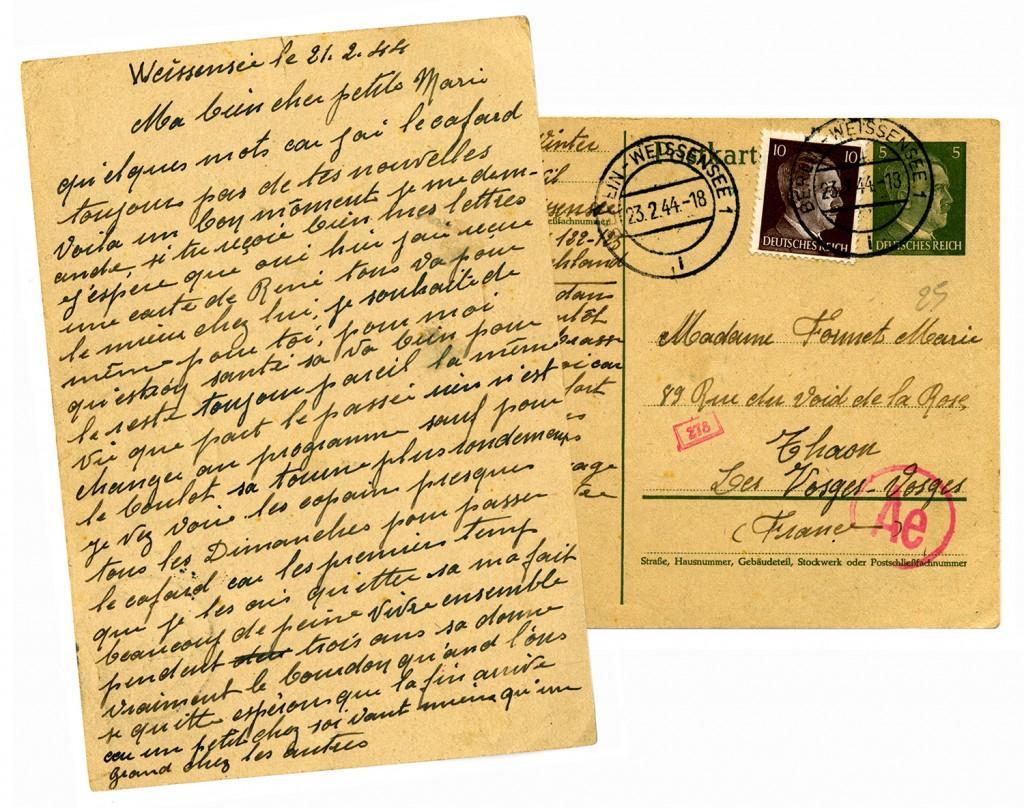 Weissensée le 21.2.44
Ma bien cher petite Marie
quelques mots car j'ai le cafard
toujours pas de tes nouvelles
Voila un bon moment je me dem-
ande, si tu reçoie bien mes lettres
j'espère que oui hier j'ai reçue
une carte de René tous va pour
le mieux chez lui, je souhaite de
même pour toi, pour moi
question santé sa va bien pour
le reste toujour pareil la même
vie que par le passée rien n'est
changer au programme sauf pour
le boulot sa tourne plus rondement
je vez voir les copain presques
tous les Dimanches pour passer
le cafard car les premiers temp
que je les ais quitter sa m'a fait
beaucoup de peine vivre ensemble
pendent trois ans sa donne
vraiment le bourdon quand l'ons
se quitte espérons que la fin arrive
car un petit chez soi vaut mieux qu'un
grand chez les autres
Postkart
BERLIN-WEISSENSEE 1
23.2.44.-18
i
10 10
DEUTSCHES REICH
BERLIN-WEISSENSEE 1
23.2.44-18
i
5 5
DEUTSCHES REICH
Madame Formet Marie
89 Rue du Void de la Rose
278
Thaon
Les Vosges-Vosges
4e
(France)
Straße, Hausnummer, Gebäudeteil, Stockwerk oder Postschließfachnummer